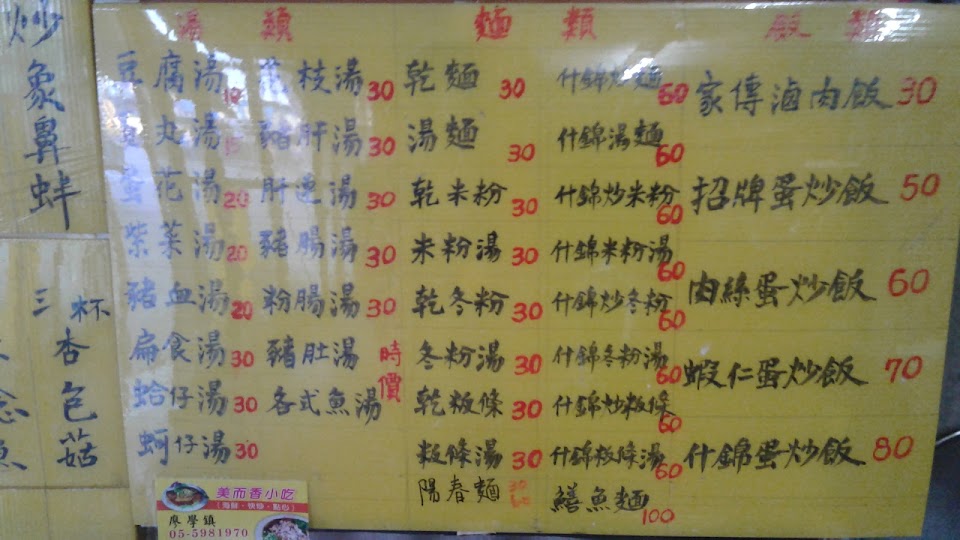 炒象鼻蚌
三杯杏包菇
湯 類
豆腐湯 10
丸湯 15
蛋花湯 20
紫菜湯 20
豬血湯 20
扁食湯 30
蛤仔湯 30
蚵仔湯 30
花枝湯 30
豬肝湯 30
肝連湯 30
豬腸湯 30
粉腸湯 30
豬肚湯
各式魚湯
時價
麵 類
乾麵 30
湯麵 30
乾米粉 30
米粉湯 30
乾冬粉 30
冬粉湯 30
乾粄條 30
粄條湯 30
陽春麵 30 60
什錦炒麵 60
什錦湯麵 60
什錦炒米粉 60
什錦米粉湯 60
什錦炒冬粉 60
什錦冬粉湯 60
什錦炒粄條 60
什錦粄條湯 60
鱔魚麵 100
飯 類
家傳滷肉飯 30
招牌蛋炒飯 50
肉絲蛋炒飯 60
蝦仁蛋炒飯 70
什錦蛋炒飯 80
美而香小吃
(海鮮・快炒・點心)
廖學鎮
05-5981970